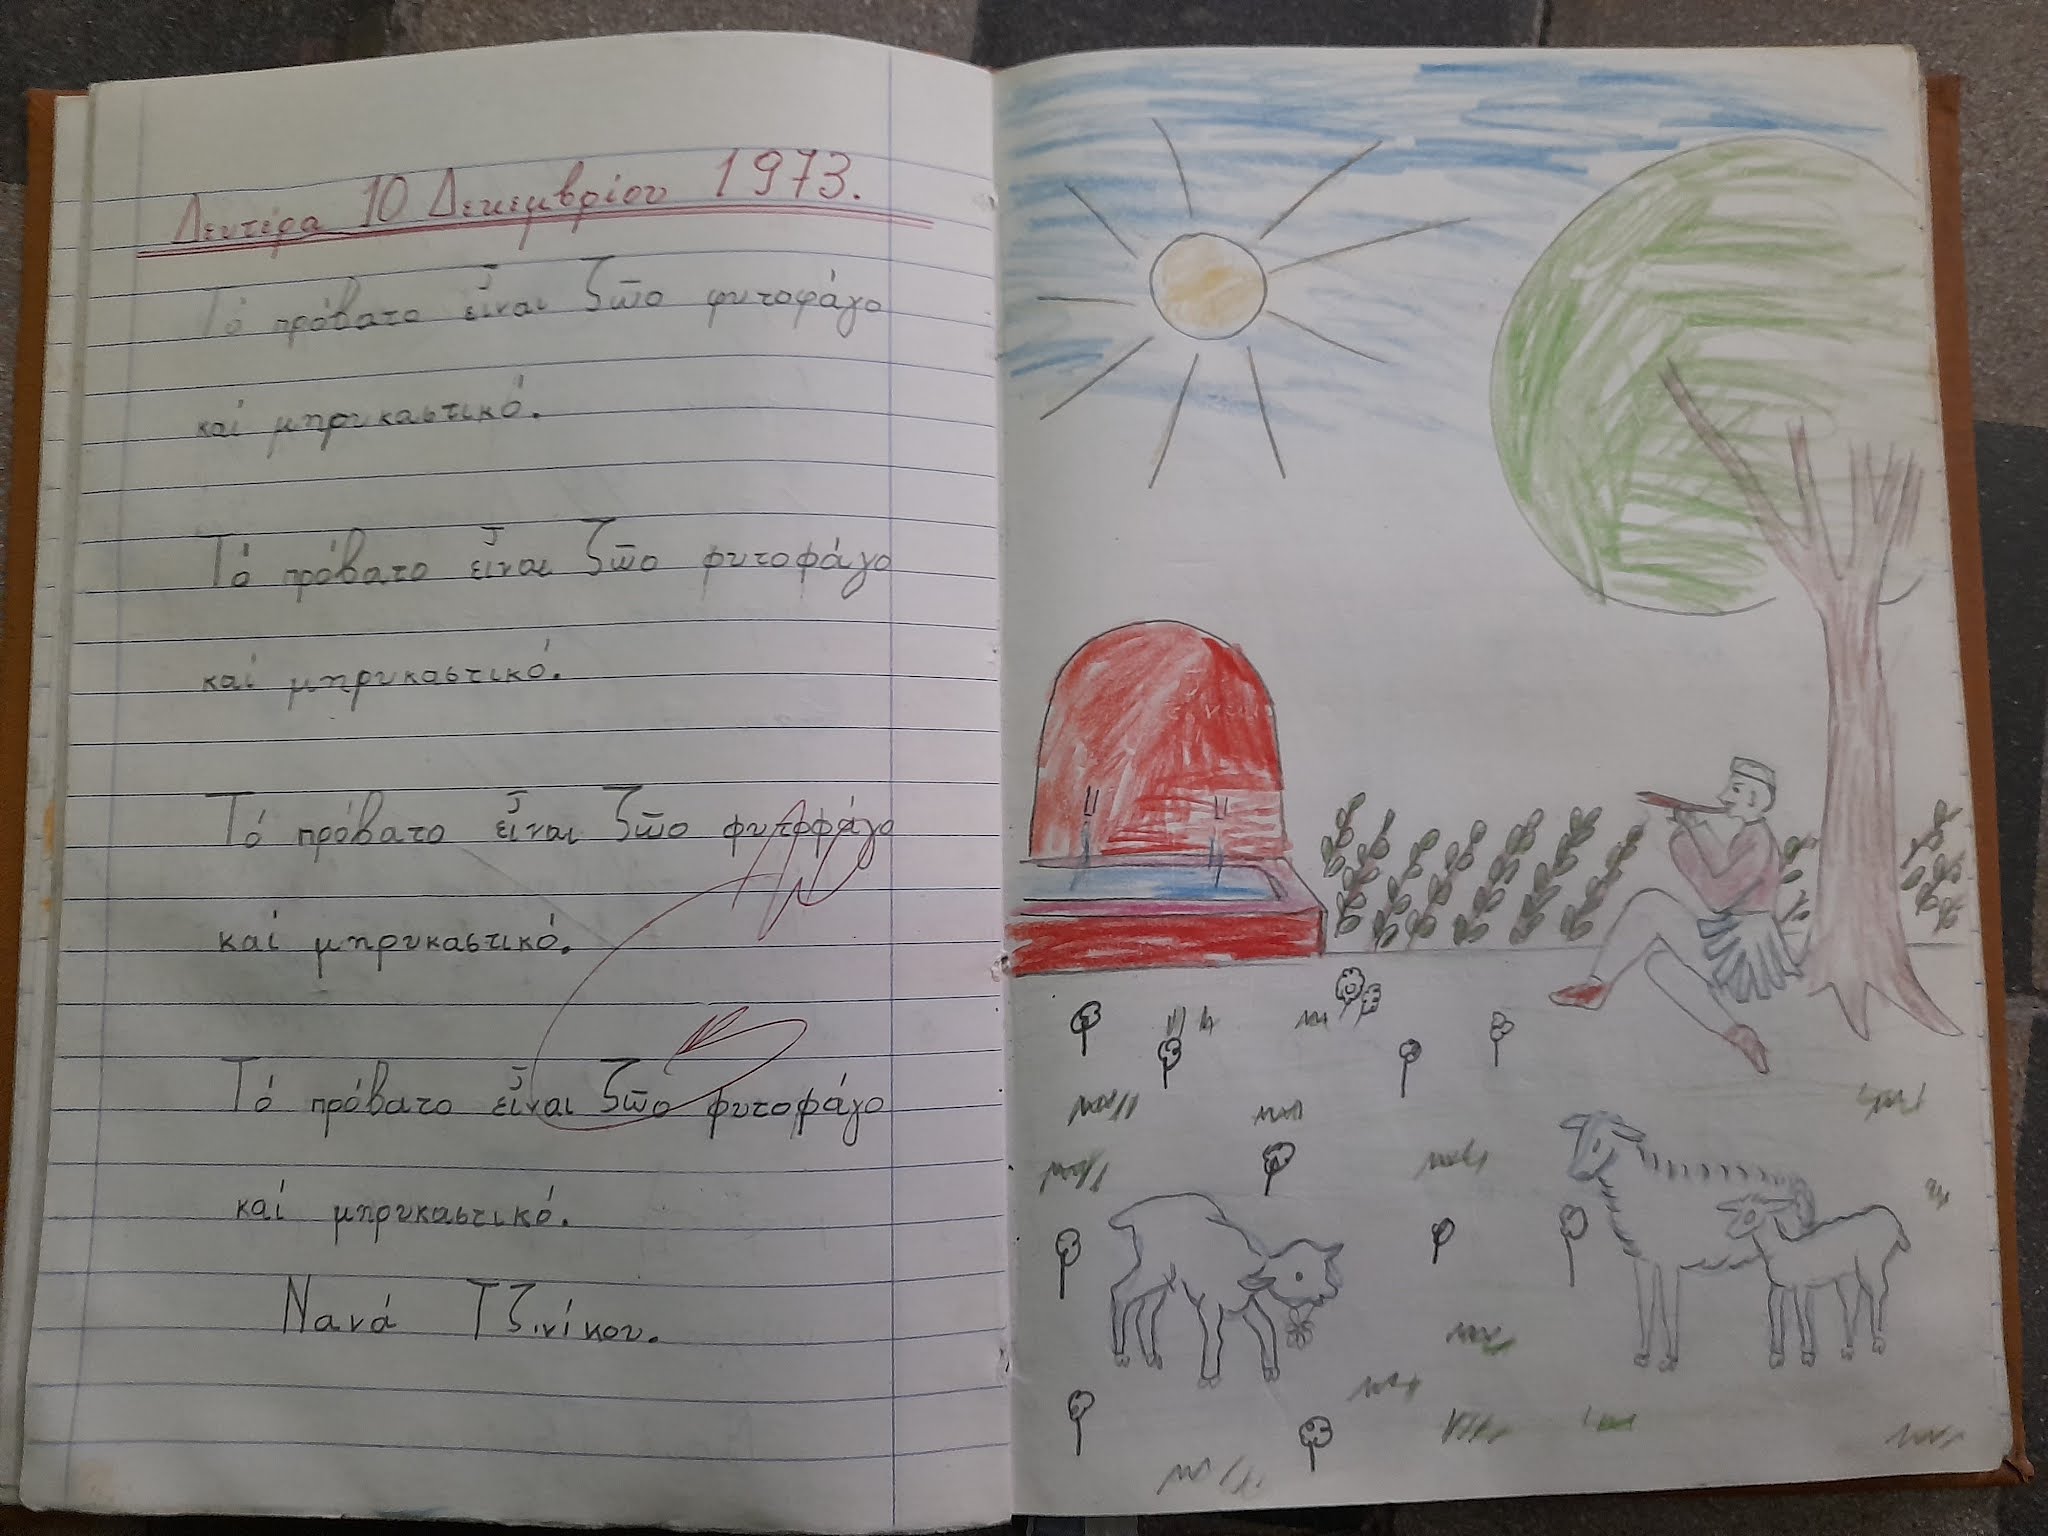 Δευτέρα 10 Δεκεμβρίου 1973.
Τό πρόβατο εἶναι ζῶο φυτοφάγο
καί μηρυκαστικό.
Τό πρόβατο εἶναι ζῶο φυτοφάγο
καί μηρυκαστικό.
Τό πρόβατο εἶναι ζῶο φυτοφάγο
καί μηρυκαστικό.
Τό πρόβατο εἶναι ζῶο φυτοφάγο
καί μηρυκαστικό.
Νανά Τζινίκου.